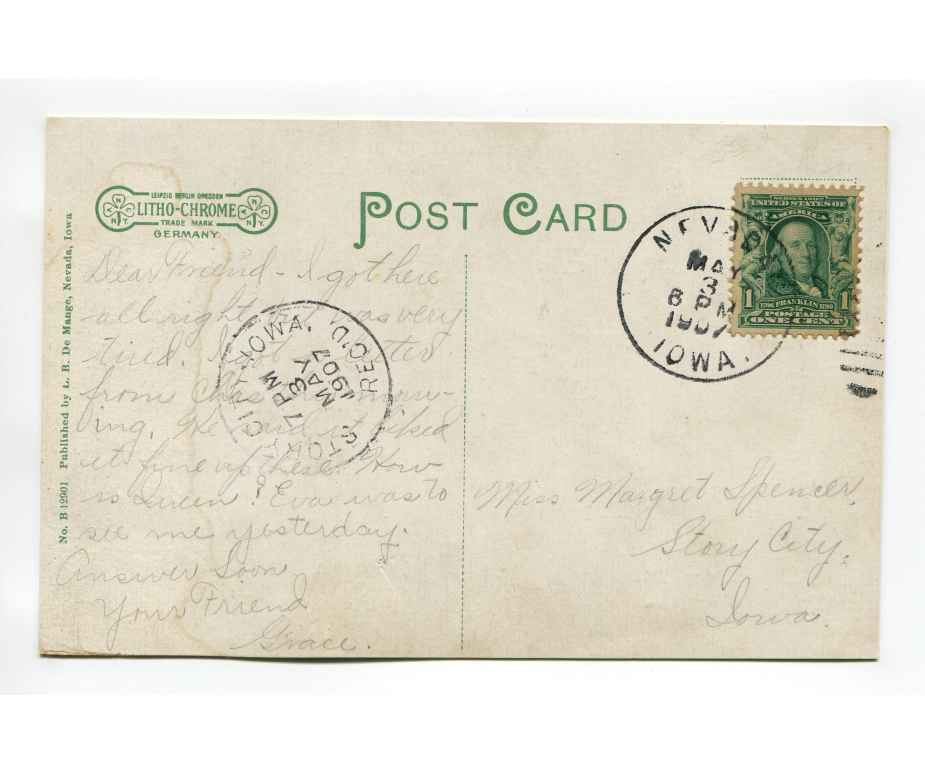 LEIPZIG BERLIN DRESDEN
LITHO-CHROME
TRADE MARK
GERMANY
N.
N.Y.
POST CARD
No. B 12901 Published by L. R. De Mange, Nevada, Iowa
Dear Friend - I got here
all right, was very
tired.
from Chas.
ing. He said it liked
it fine up there. How
is Queen? Eva was to
see me yesterday.
Answer Soon
Your Friend
Grace.
STORY CITY, IOWA.
MAY 3
7 PM
1907
REC'D.
NEVADA
MAY
3
6 PM
1907
IOWA.
UNITED STATES OF
AMERICA
1 FRANKLIN 1
POSTAGE
ONE CENT
Miss Margret Spencer,
Story City,
Iowa.